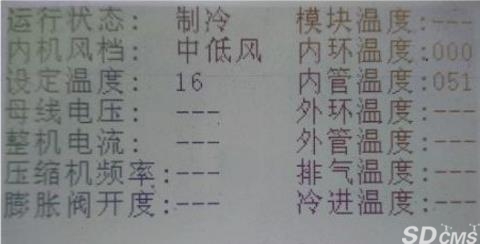 运行状态: 制冷 模块温度:---
内机风档: 中低风 内环温度:000
设定温度: 16 内管温度:051
母线电压: --- 外环温度:---
整机电流: --- 外管温度:---
压缩机频率:--- 排气温度:---
膨胀阀开度:--- 冷进温度:---
SDCMS